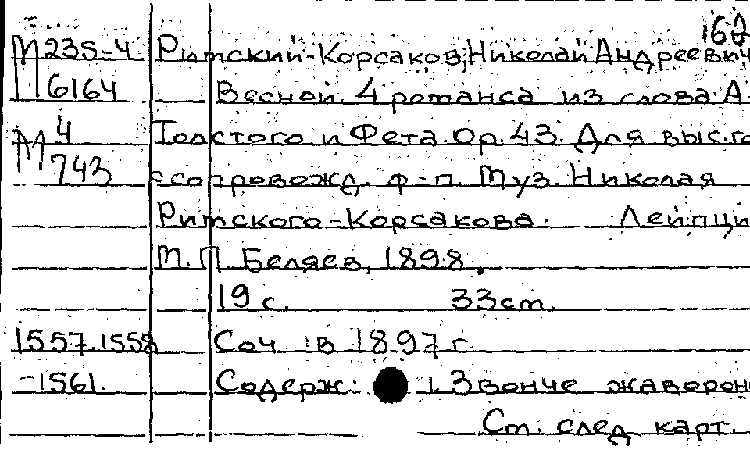 162
М 235-4 Римский-Корсаков, Николай Андреевич
6164 Весной. 4 романса из слова А.
М 4 Толстого и Фета. Op. 43. Для выс. го
743 с сопровожд. ф-п. Муз. Николая
Римского-Корсакова. Лейпци
М. П. Беляев, 1898.
19 с. 33 cm.
1557.1558 Соч. в 1897 г.
-1561. Содерж: 1. Звонче жаворон
См. след карт.